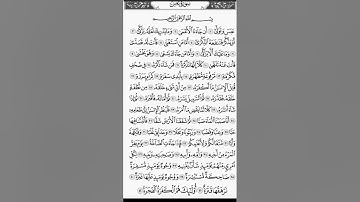 سُورَةُ عَبَسَ
بِسْمِ اللَّهِ الرَّحْمَٰنِ الرَّحِيمِ
عَبَسَ وَتَوَلَّىٰ ١ أَن جَاءَهُ الْأَعْمَىٰ ٢ وَمَا يُدْرِيكَ لَعَلَّهُ يَزَّكَّىٰ ٣
أَوْ يَذَّكَّرُ فَتَنفَعَهُ الذِّكْرَىٰ ٤ أَمَّا مَنِ اسْتَغْنَىٰ ٥ فَأَنتَ لَهُ تَصَدَّىٰ ٦
وَمَا عَلَيْكَ أَلَّا يَزَّكَّىٰ ٧ وَأَمَّا مَن جَاءَكَ يَسْعَىٰ ٨ وَهُوَ يَخْشَىٰ ٩
فَأَنتَ عَنْهُ تَلَهَّىٰ ١٠ كَلَّا إِنَّهَا تَذْكِرَةٌ ١١ فَمَن شَاءَ ذَكَرَهُ ١٢ فِي صُحُفٍ
مُّكَرَّمَةٍ ١٣ مَّرْفُوعَةٍ مُّطَهَّرَةٍ ١٤ بِأَيْدِي سَفَرَةٍ ١٥ كِرَامٍ بَرَرَةٍ ١٦
قُتِلَ الْإِنسَانُ مَا أَكْفَرَهُ ١٧ مِنْ أَيِّ شَيْءٍ خَلَقَهُ ١٨ مِن نُّطْفَةٍ
خَلَقَهُ فَقَدَّرَهُ ١٩ ثُمَّ السَّبِيلَ يَسَّرَهُ ٢٠ ثُمَّ أَمَاتَهُ فَأَقْبَرَهُ ٢١ ثُمَّ
إِذَا شَاءَ أَنشَرَهُ ٢٢ كَلَّا لَمَّا يَقْضِ مَا أَمَرَهُ ٢٣ فَلْيَنظُرِ الْإِنسَانُ إِلَىٰ
طَعَامِهِ ٢٤ أَنَّا صَبَبْنَا الْمَاءَ صَبًّا ٢٥ ثُمَّ شَقَقْنَا الْأَرْضَ شَقًّا ٢٦ فَأَنبَتْنَا فِيهَا
حَبًّا ٢٧ وَعِنَبًا وَقَضْبًا ٢٨ وَزَيْتُونًا وَنَخْلًا ٢٩ وَحَدَائِقَ غُلْبًا ٣٠
وَفَاكِهَةً وَأَبًّا ٣١ مَّتَاعًا لَّكُمْ وَلِأَنْعَامِكُمْ ٣٢ فَإِذَا جَاءَتِ الصَّاخَّةُ ٣٣ يَوْمَ يَفِرُّ
الْمَرْءُ مِنْ أَخِيهِ ٣٤ وَأُمِّهِ وَأَبِيهِ ٣٥ وَصَاحِبَتِهِ وَبَنِيهِ ٣٦ لِكُلِّ
امْرِئٍ مِّنْهُمْ يَوْمَئِذٍ شَأْنٌ يُغْنِيهِ ٣٧ وُجُوهٌ يَوْمَئِذٍ مُّسْفِرَةٌ ٣٨
ضَاحِكَةٌ مُّسْتَبْشِرَةٌ ٣٩ وَوُجُوهٌ يَوْمَئِذٍ عَلَيْهَا غَبَرَةٌ ٤٠
تَرْهَقُهَا قَتَرَةٌ ٤١ أُولَٰئِكَ هُمُ الْكَفَرَةُ الْفَجَرَةُ ٤٢